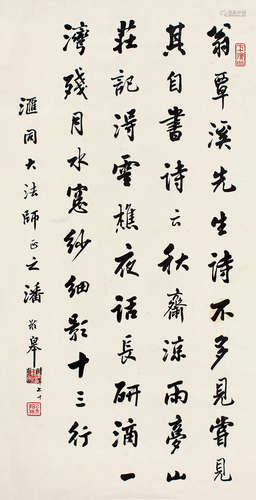 翁覃溪先生诗不多見嘗見
其自書詩云秋齋涼雨夢山
莊記得雪樵夜話長研滴一
灣殘月水窻紗細影十三行
滙同大法師正之潘齡皋